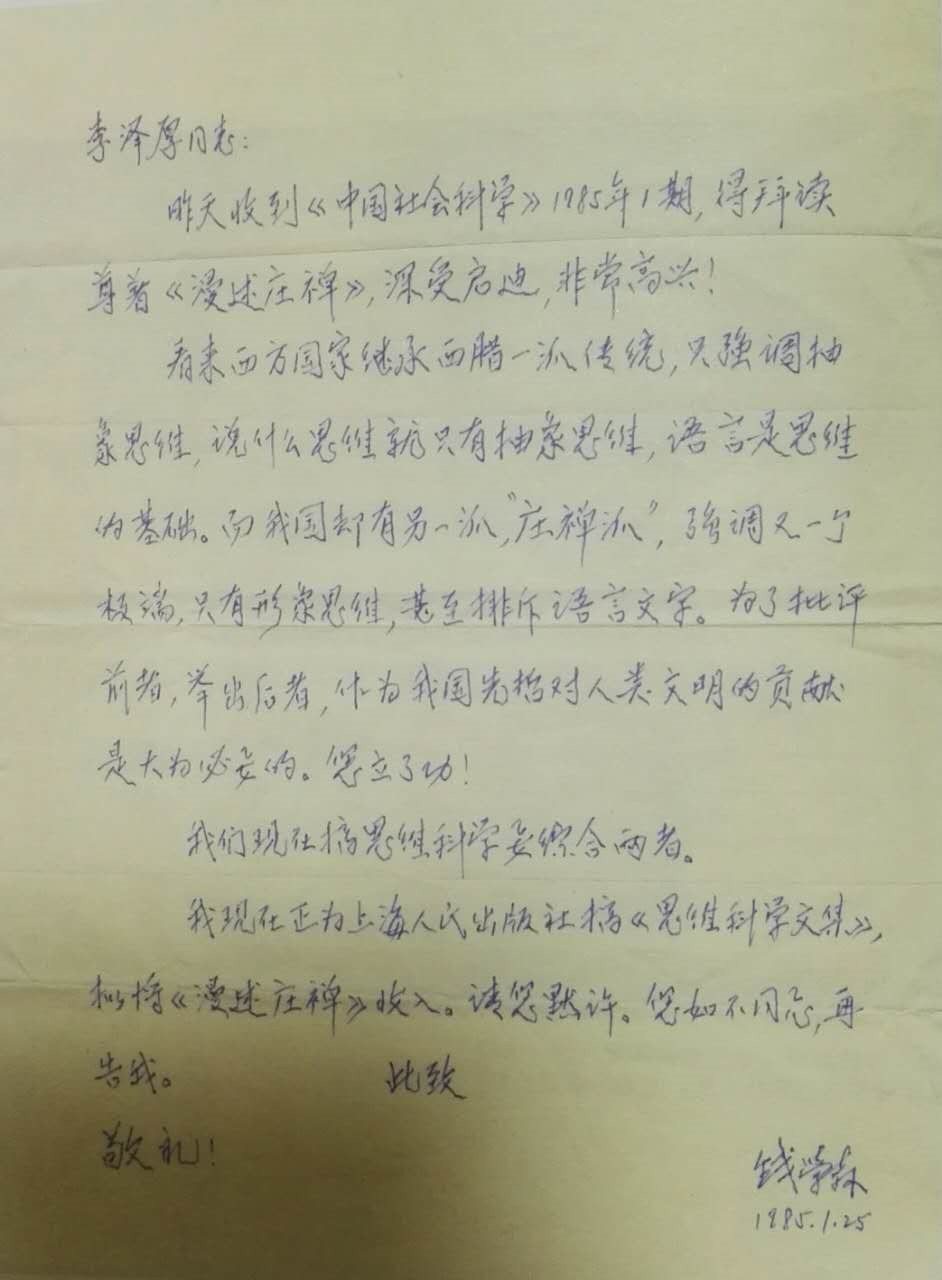 李泽厚同志：
昨天收到《中国社会科学》1985年1期，得拜读
尊著《漫述庄禅》，深受启迪，非常高兴！
看来西方国家继承西腊一派传统，只强调抽
象思维，说什么思维就只有抽象思维，语言是思维
的基础。而我国却有另一派，“庄禅派”，强调又一个
极端，只有形象思维，甚至排斥语言文字。为了批评
前者，举出后者，作为我国先哲对人类文明的贡献
是大为必要的。您立了功！
我们现在搞思维科学要综合两者。
我现在正为上海人民出版社搞《思维科学文集》，
拟将《漫述庄禅》收入。请您默许。您如不同意，再
告我。 此致
敬礼！
钱学森
1985.1.25